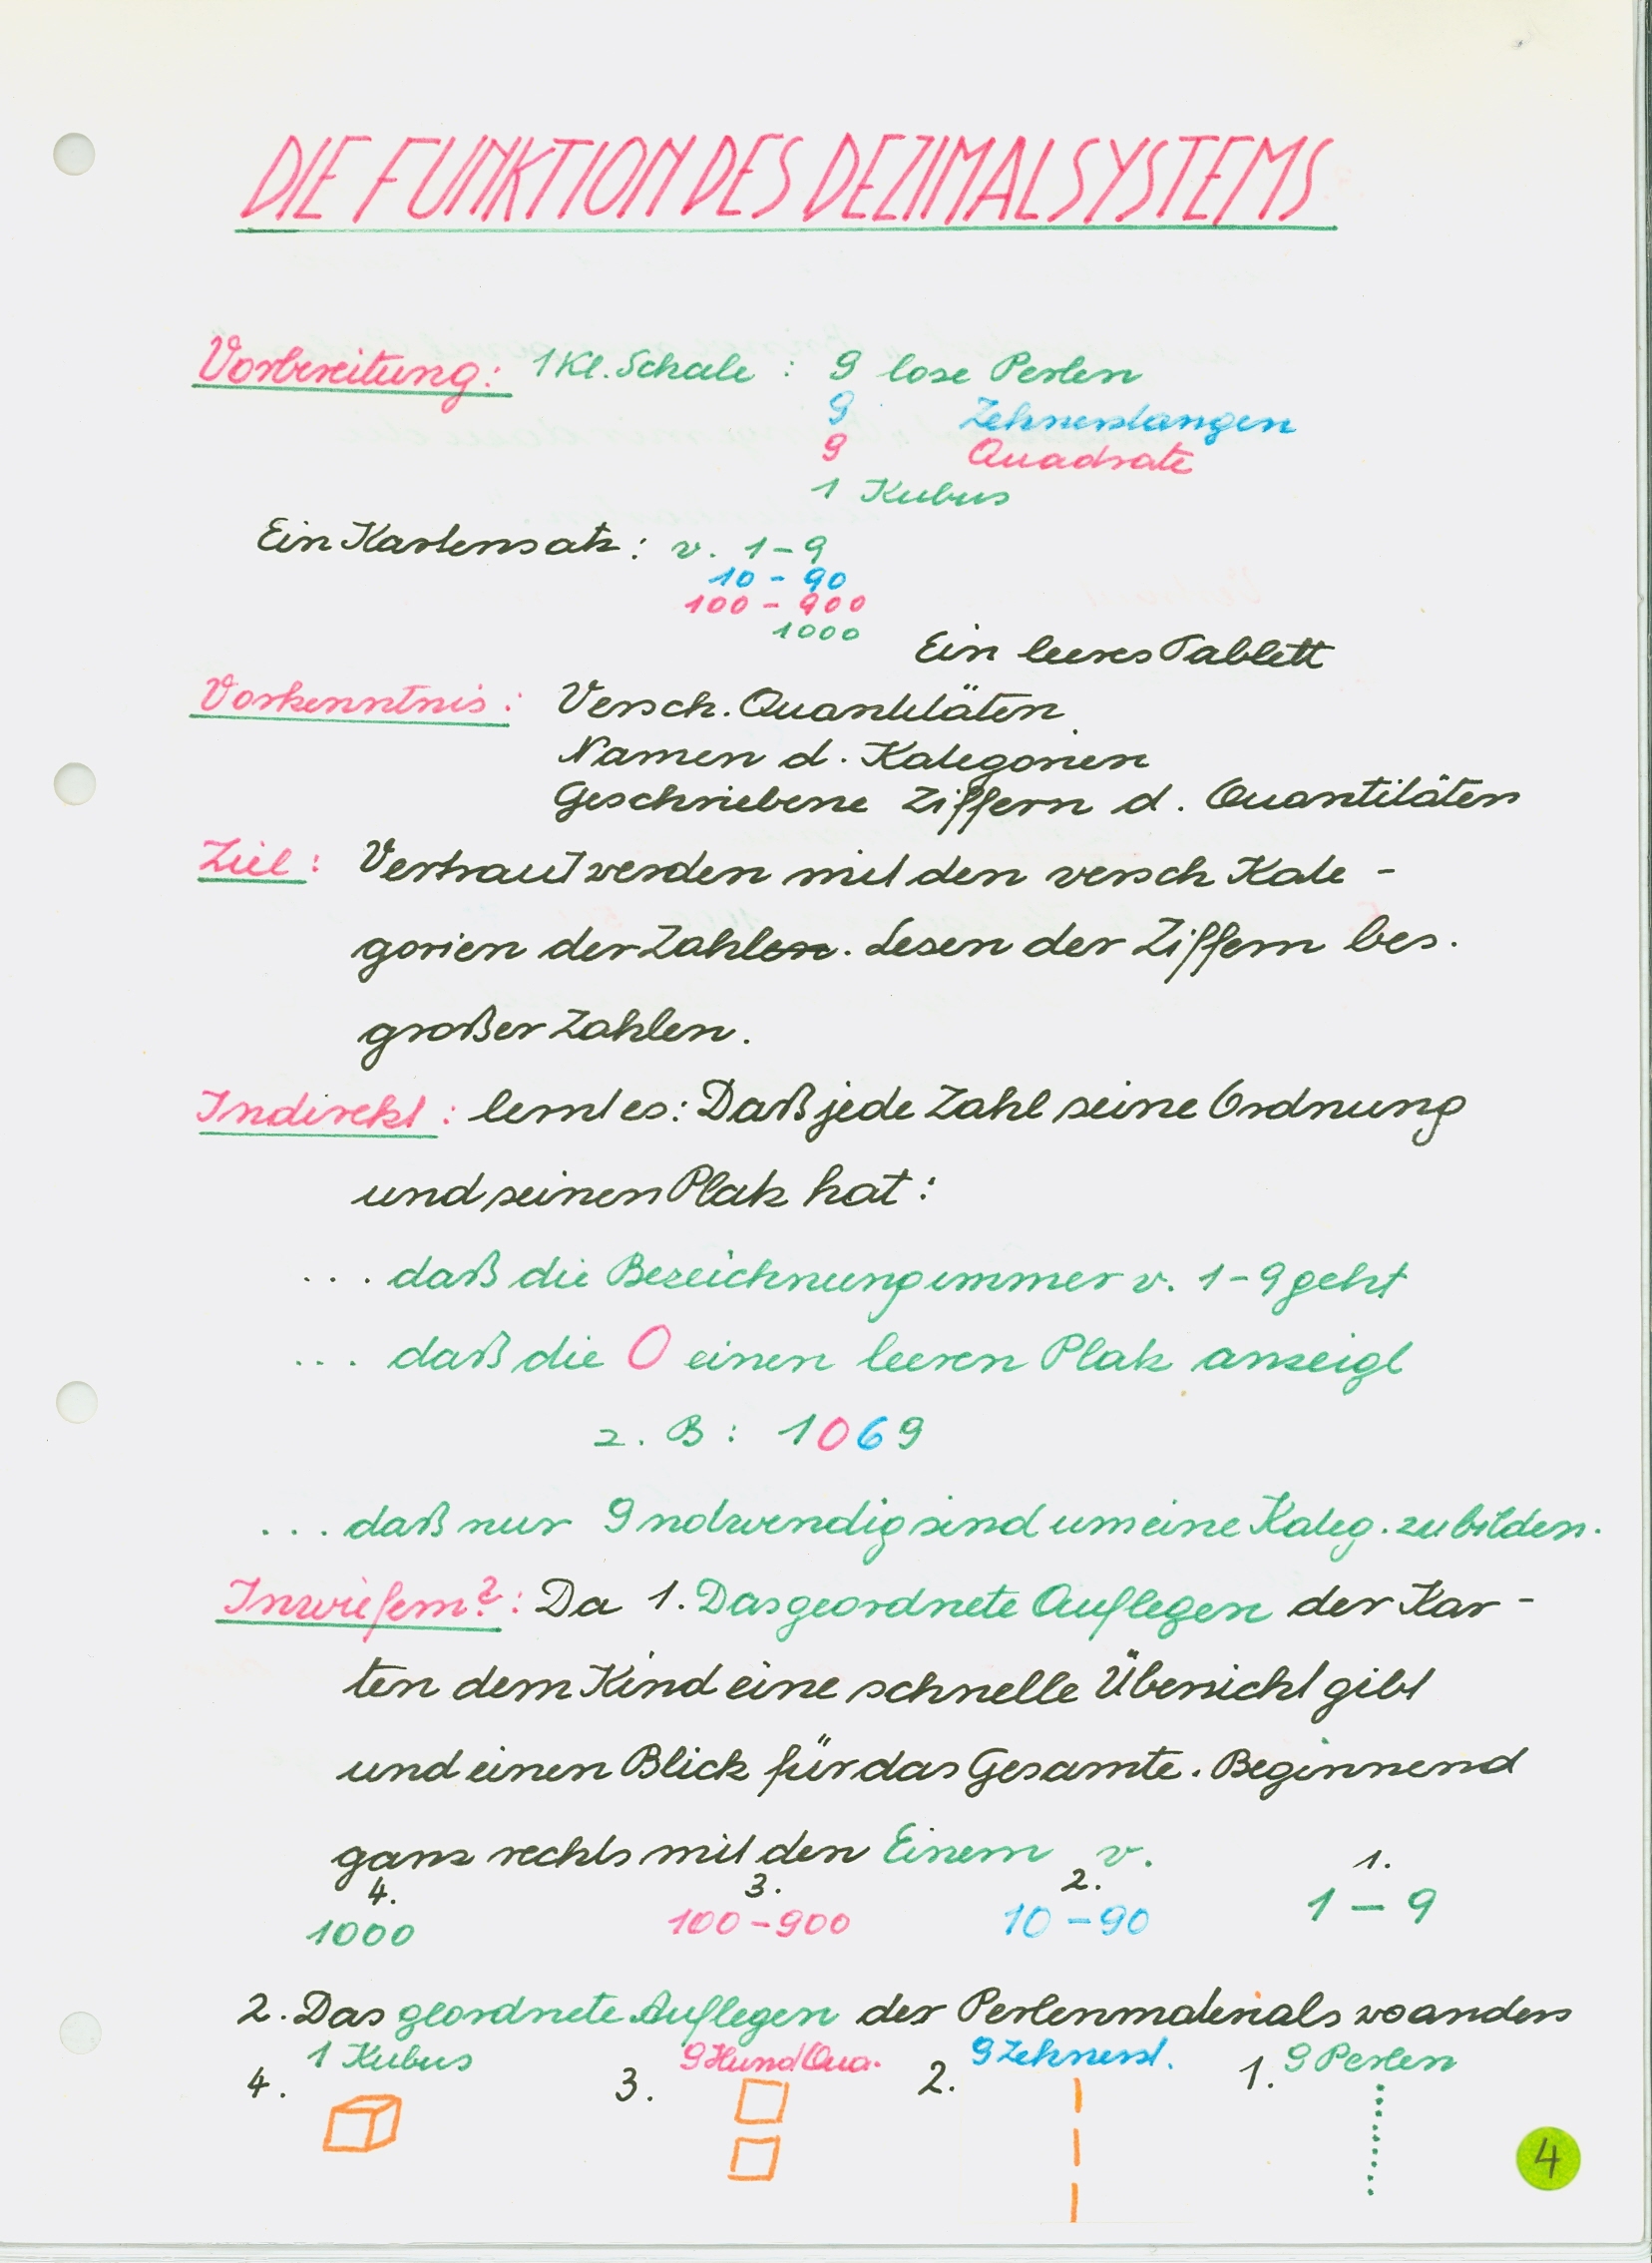 DIE FUNKTION DES DEZIMALSYSTEMS
Vorbereitung: 1 Kl. Schale : 9 lose Perlen
9 Zehnerstangen
9 Quadrate
1 Kubus
Ein Kartensatz: v. 1-9
10 - 90
100 - 900
1000
Ein leeres Tablett
Vorkenntnis: Versch. Quantitäten
Namen d. Kategorien
Geschriebene Ziffern d. Quantitäten
Ziel: Vertraut werden mit den versch Kate -
gorien der Zahlen. Lesen der Ziffern bes.
großer Zahlen.
Indirekt: lernt es: Daß jede Zahl seine Ordnung
und seinen Platz hat:
... daß die Bezeichnung immer v. 1-9 geht
... daß die 0 einen leeren Platz anzeigt
z. B: 1069
... daß nur 9 notwendig sind um eine Kateg. zu bilden.
Inwiefern?: Da 1. Das geordnete Auflegen der Kar -
ten dem Kind eine schnelle Übersicht gibt
und einen Blick für das Gesamte. Beginnend
ganz rechts mit den Einern v.
4. 3. 2. 1.
1000 100-900 10-90 1-9
2. Das geordnete Auflegen des Perlenmaterials woanders
1 Kubus 9 Hund Qua. 9 Zehnerst. 9 Perlen
4. 3. 2. 1.
4